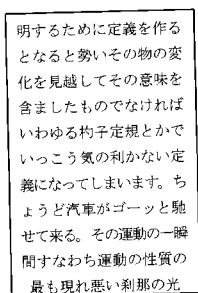 明するために定義を作る
となると勢いその物の変
化を見越してその意味を
含ましたものでなければ
いわゆる杓子定規とかで
いっこう気の利かない定
義になってしまいます。ち
ょうど汽車がゴーッと馳
せて来る。その運動の一瞬
間すなわち運動の性質の
最も現れ悪い刹那の光